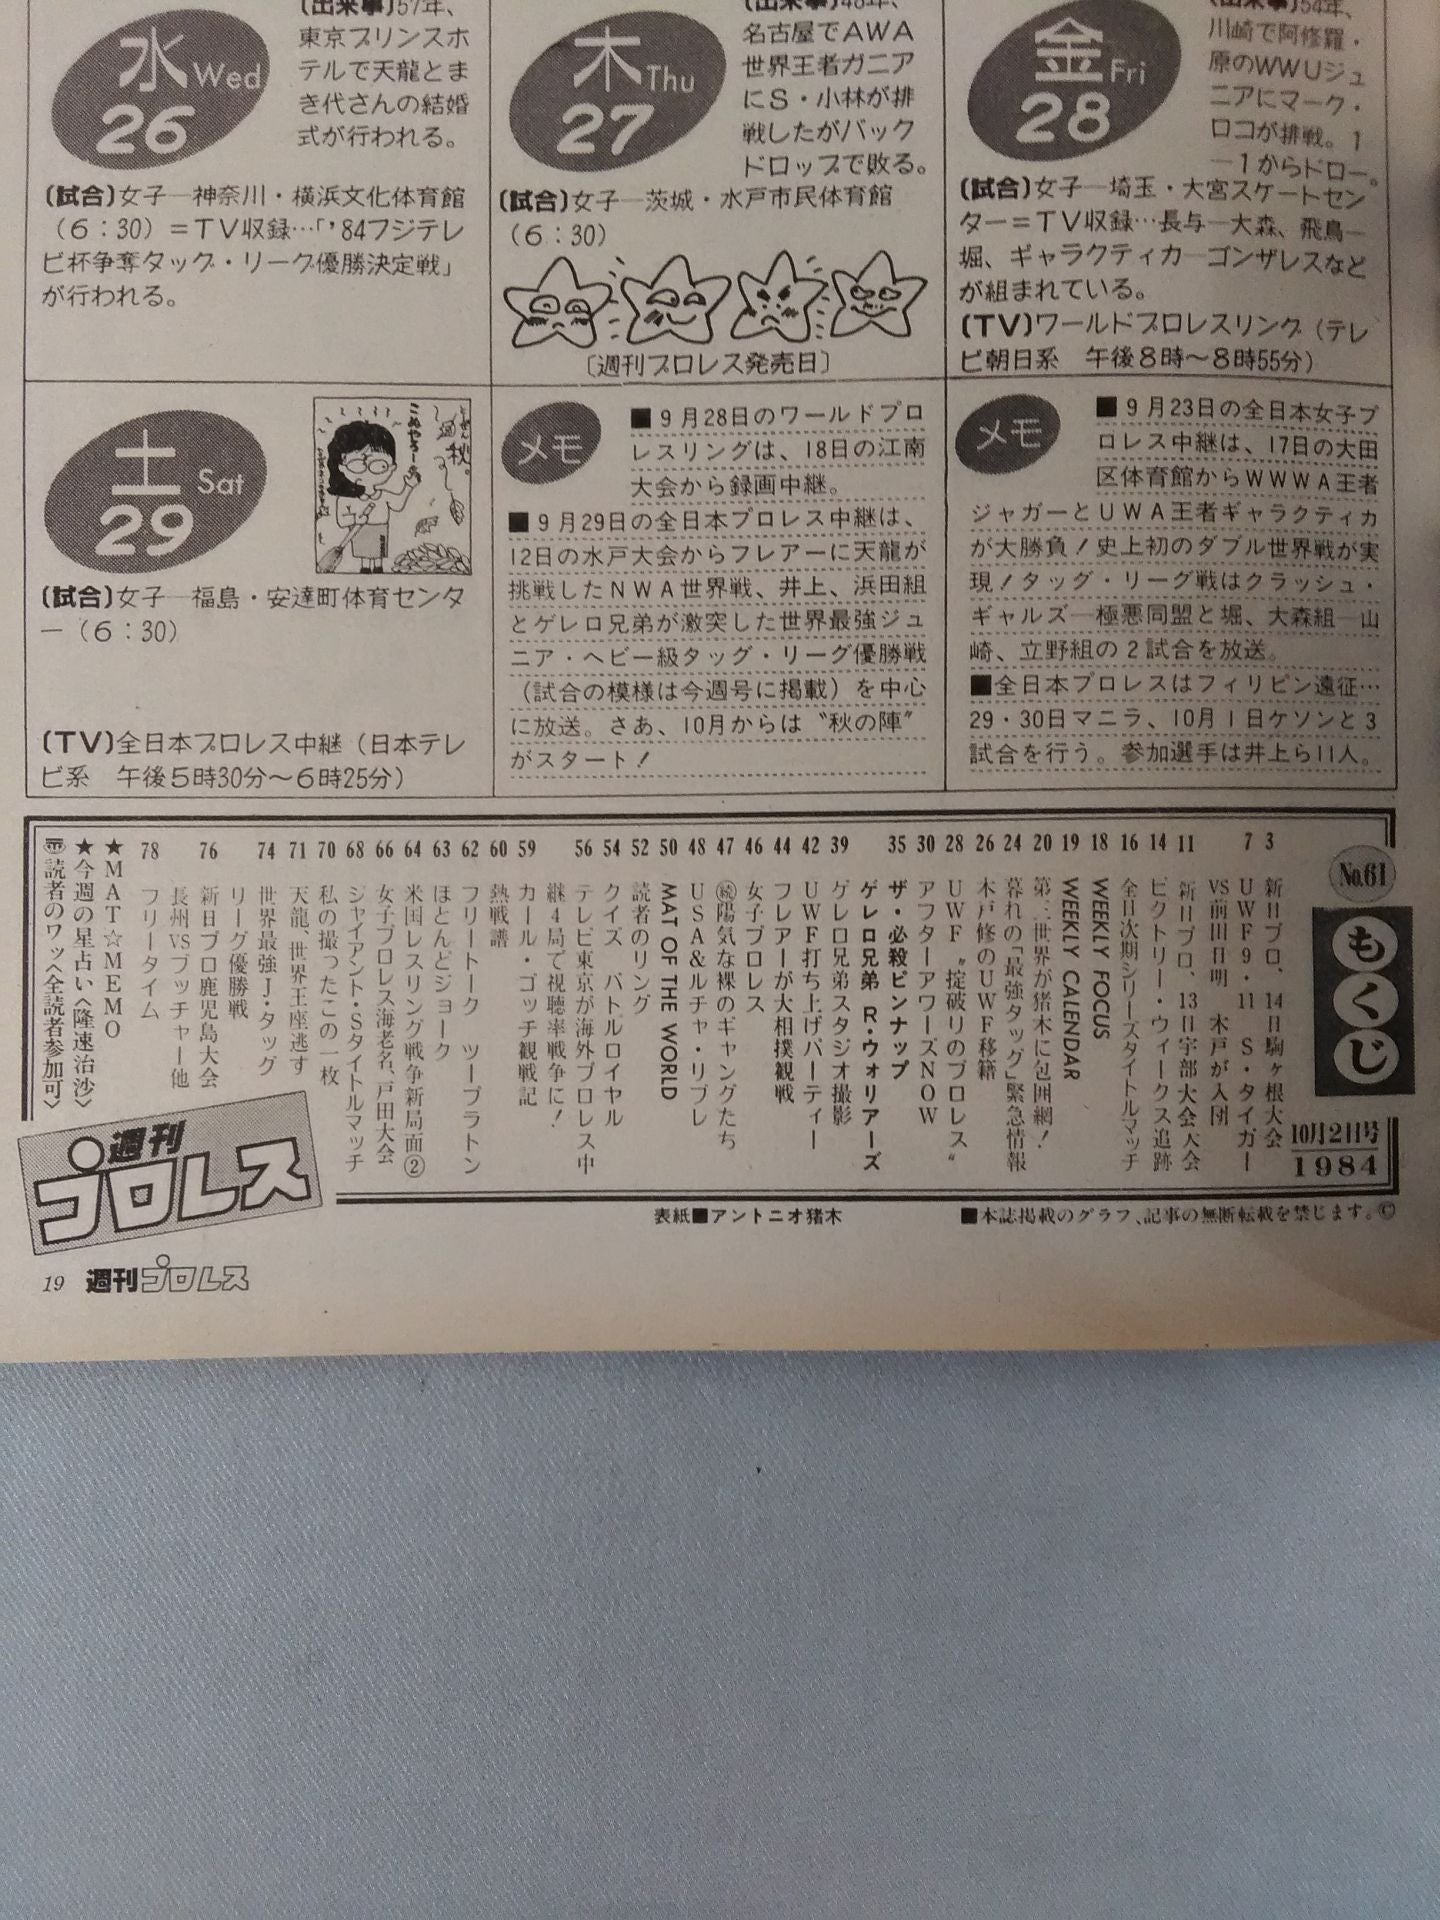 水 Wed 26
東京プリンスホ
テルで天龍とま
き代さんの結婚
式が行われる。
(試合)女子―神奈川・横浜文化体育館
(6:30)=TV収録…「'84フジテレ
ビ杯争奪タッグ・リーグ優勝決定戦」
が行われる。
木 Thu 27
名古屋でAWA
世界王者ガニア
にS・小林が挑
戦したがバック
ドロップで敗る。
(試合)女子―茨城・水戸市民体育館
(6:30)
〔週刊プロレス発売日〕
金 Fri 28
川崎で阿修羅・
原のWWUジュ
ニアにマーク・
ロコが挑戦。1
―1からドロー。
(試合)女子―埼玉・大宮スケートセン
ター=TV収録…長与―大森、飛鳥―
堀、ギャラクティカ―ゴンザレスなど
が組まれている。
(TV)ワールドプロレスリング(テレ
ビ朝日系 午後8時〜8時55分)
土 Sat 29
秋。
(試合)女子―福島・安達町体育センタ
ー(6:30)
(TV)全日本プロレス中継(日本テレ
ビ系 午後5時30分〜6時25分)
メモ
■9月28日のワールドプロ
レスリングは、18日の江南
大会から録画中継。
■9月29日の全日本プロレス中継は、
12日の水戸大会からフレアーに天龍が
挑戦したNWA世界戦、井上、浜田組
とゲレロ兄弟が激突した世界最強ジュ
ニア・ヘビー級タッグ・リーグ優勝戦
(試合の模様は今週号に掲載)を中心
に放送。さあ、10月からは〝秋の陣〟
がスタート!
メモ
■9月23日の全日本女子プ
ロレス中継は、17日の大田
区体育館からWWWA王者
ジャガーとUWA王者ギャラクティカ
が大勝負!史上初のダブル世界戦が実
現!タッグ・リーグ戦はクラッシュ・
ギャルズ―極悪同盟と堀、大森組―山
崎、立野組の2試合を放送。
■全日本プロレスはフィリピン遠征…
29・30日マニラ、10月1日ケソンと3
試合を行う。参加選手は井上ら11人。
No.61
もくじ
10月2日号
1984
3 新日プロ、14日駒ヶ根大会
7 UWF9・11 S・タイガー
VS前田日明 木戸が入団
11 新日プロ、13日宇部大会
14 ビクトリー・ウィークス追跡
16 全日次期シリーズタイトルマッチ
18 WEEKLY FOCUS
19 WEEKLY CALENDAR
20 第三世界が猪木に包囲網!
24 暮れの「最強タッグ」緊急情報
26 木戸修のUWF移籍
28 UWF〝掟破りのプロレス〟
30 アフターアワーズNOW
35 ザ・必殺ピンナップ
ゲレロ兄弟 R・ウォリアーズ
39 ゲレロ兄弟スタジオ撮影
42 UWF打ち上げパーティー
44 フレアーが大相撲観戦
46 女子プロレス
47 ㊙陽気な裸のギャングたち
48 USA&ルチャ・リブレ
50 MAT OF THE WORLD
52 読者のリング
54 クイズ バトルロイヤル
56 テレビ東京が海外プロレス中
継4局で視聴率戦争に!
59 カール・ゴッチ観戦記
60 熱戦譜
62 フリートーク ツープラトン
63 ほとんどジョーク
64 米国レスリング戦争新局面②
66 女子プロレス海老名、戸田大会
68 ジャイアント・Sタイトルマッチ
70 私の撮ったこの一枚
71 天龍、世界王座逃す
74 世界最強J・タッグ
リーグ優勝戦
76 新日プロ鹿児島大会
長州VSブッチャー他
78 フリータイム
★MAT☆MEMO
★今週の星占い〈隆速治沙〉
読者のワッ〈全読者参加可〉
週刊プロレス
表紙■アントニオ猪木
■本誌掲載のグラフ、記事の無断転載を禁じます。©
19 週刊プロレス